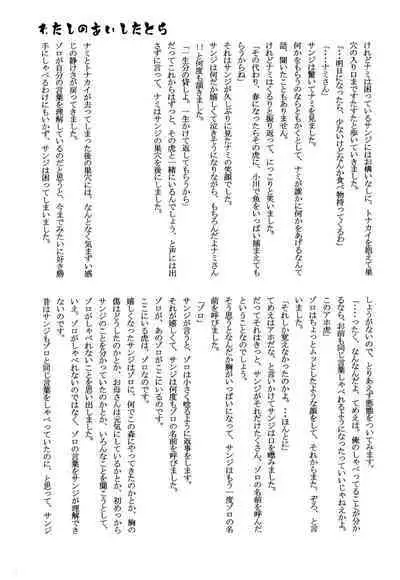 わたしのあいしたとら
けれどナミは困っているサンジにはお構いなしに、トナカイを抱えて巣
穴の入り口まですたすたと歩いていきました。
「…明日になったら、少ないけどなんか食べ物持ってくるわ」
「…ナミさん」
サンジは驚いてナミを見ました。
何かをもらうのならともかくとして、ナミが誰かに何かをあげるなんて
話、聞いたこともありません。
けれどナミはくるりと振り返って、にっこりと笑いました。
「その代わり、春になったらその虎に、小川で魚をいっぱい捕まえても
らうからね」
それはサンジが久しぶりに見たナミの笑顔でした。
サンジは何だか嬉しくて泣きそうになりながら、もちろんだよナミさん
!!と何度も頷きました。
「一生分の貸しよ。一生かけて返してもらうから」
だってこれからはずっと、その虎と一緒にいるんでしょう、と声には出
さずに言って、ナミはサンジの巣穴を後にしました。
ナミとトナカイが去ってしまった後の巣穴には、なんとなく気まずい感
じの静けさが戻ってきました。
ゾロが自分の言葉を理解しているのだと思うと、今までみたいに好き勝
手にしゃべるわけにもいかず、サンジは困ってしまいました。
しょうがないので、とりあえず悪態をついてみます。
「…ったく、なんなんだよ、てめえは。俺のしゃべってることが分か
るなら、お前も同じ言葉しゃべれるようになったっていいじゃねえかよ。
このアホ虎」
ゾロはちょっとムッとしたような顔をして、それからまた、ぞろ、と言
いました。
「それしか覚えなかったのかよ。…ほんとに」
てめえはアホだな、と言いかけてサンジは口を噤みました。
だってそれはきっと、サンジがそれだけたくさん、ゾロの名前を呼んだ
ということなのでしょう。
そう思うとなんだか胸がいっぱいになって、サンジはもう一度ゾロの名
前を呼びました。
「ゾロ」
サンジが言うと、ゾロは小さく唸るように返事をします。
それが嬉しくて、サンジは何度もゾロの名前を呼びました。
ゾロが、あのゾロがここにいるのです。
ここにいる虎は、ゾロなのです。
嬉しくなったサンジは、ゾロに、いつこの森にやってきたのかとか、胸の
傷はどうしたのかとか、お母さんは元気にしているかとか、初めっから
サンジのことを分かっていたのかとか、いろんなことを聞こうとして、
ゾロがしゃべれないことを思い出しました。
いいえ、ゾロがしゃべれないのではなく、ゾロの言葉をサンジが理解でき
ないのです。
昔はサンジもゾロと同じ言葉をしゃべっていたのに、と思って、サンジ